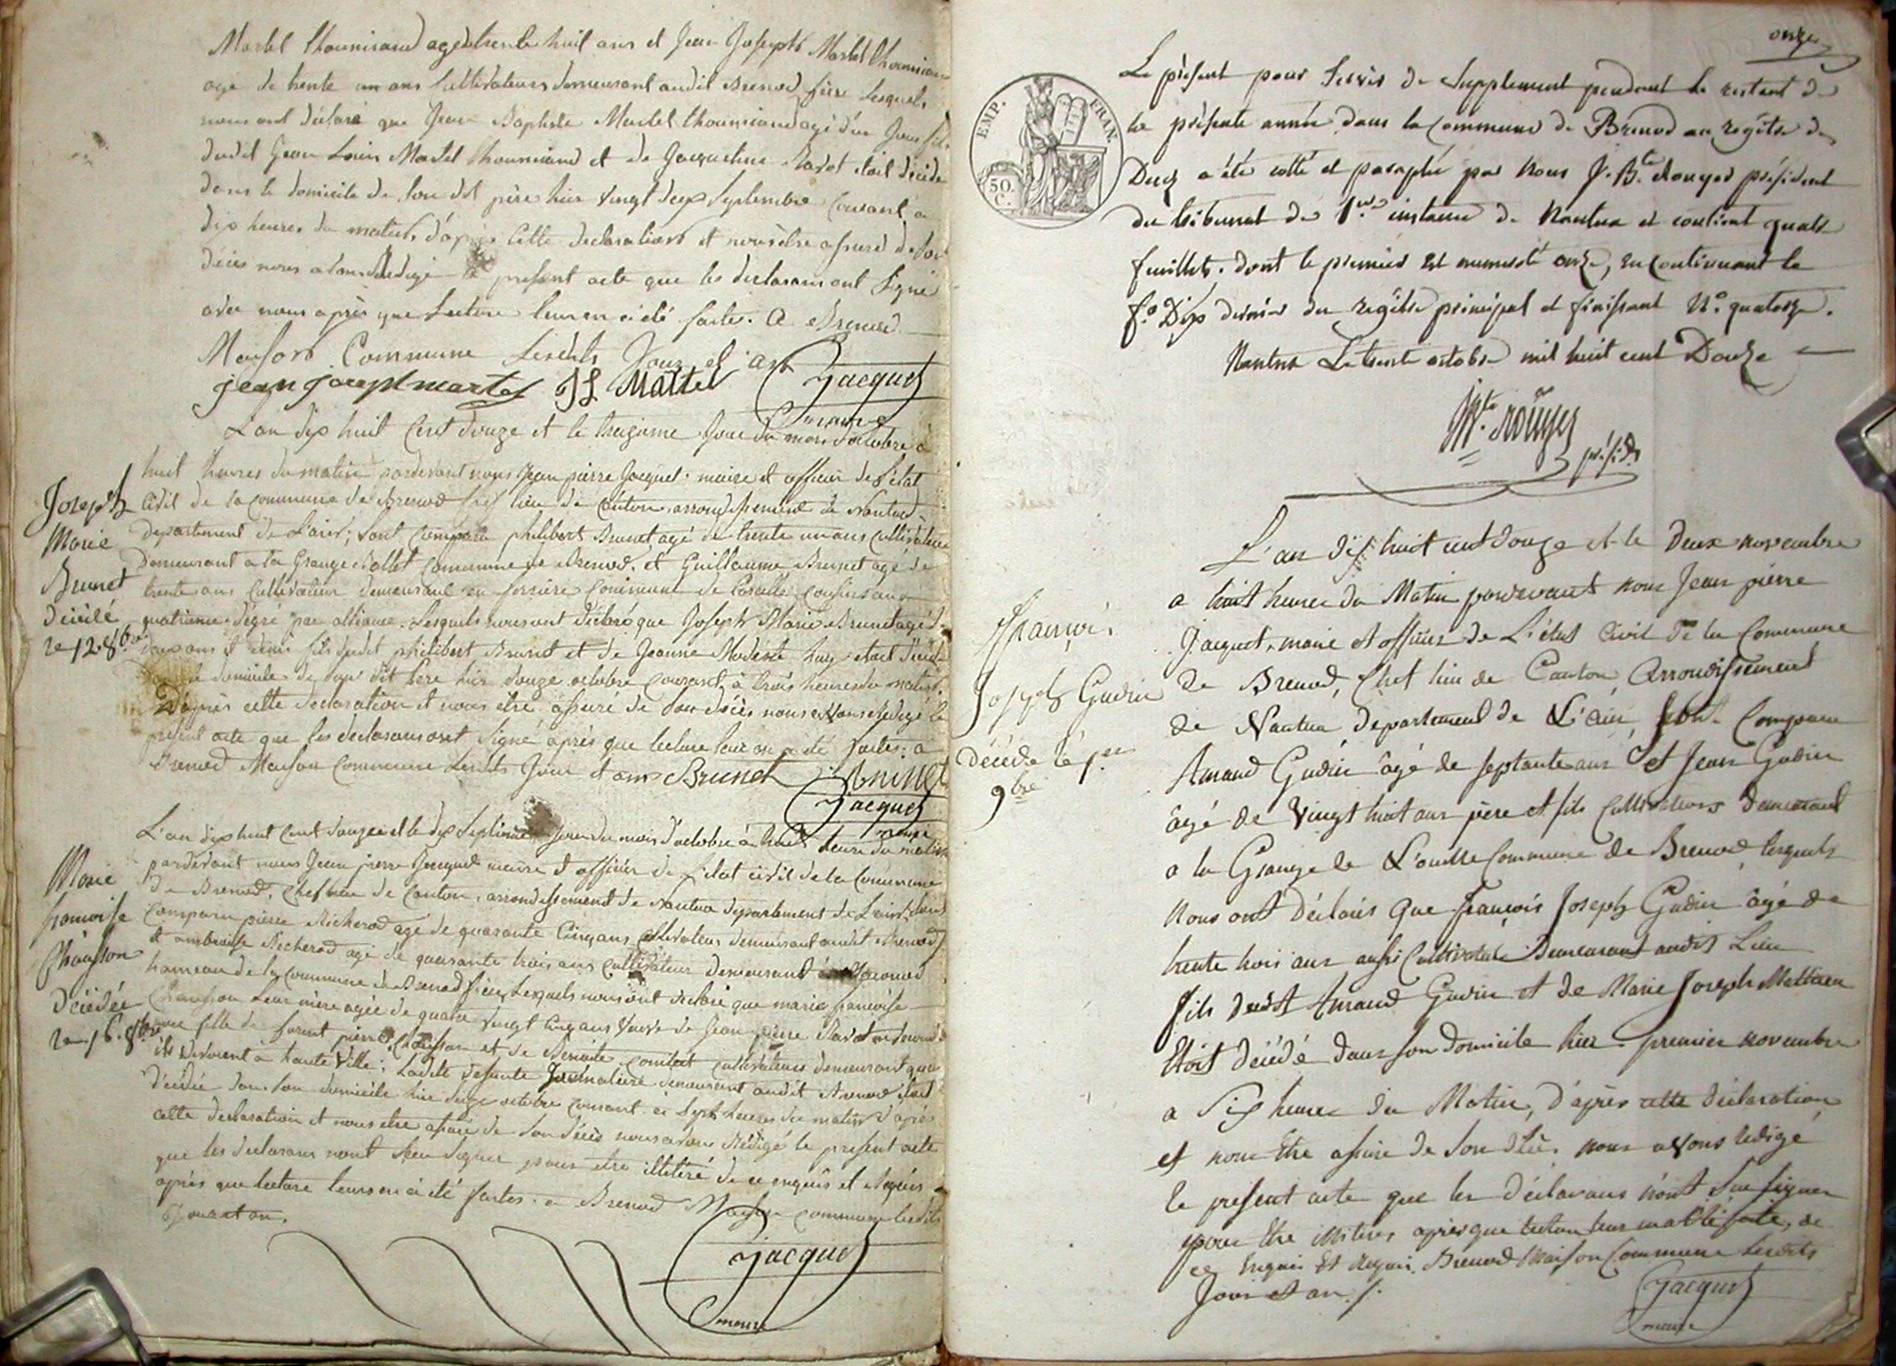 Martel Thoumirand agé de trente huit ans et Jean Joseph Martel Thoumirand
agé de trente un ans cultivateurs demeurant audit Brenod frère Lesquels
nous ont déclaré que Jean Baptiste Martel Thoumirand agé d'un Jour fils
dudit Jean Louis Martel Thoumirand et de Jacqueline Ravot etoit décédé
dans le domicile de son dit père hier vingt deux Septembre Courant a
dix heures du matin, d'après cette declaration et nous être assuré de son
décès nous avons Redigé le present acte que les declarans ont Signé
avec nous après que Lecture leur en a été faite. A Brenod
Maison Commune Lesdits Jour et an
jean joseph martel JL Martel Jacquet
maire
L'an dix huit Cent douze et le treizieme Jour du mois d'octobre à
huit heures du matin pardevant nous Jean pierre Jacquet maire et officier de l'état
Joseph
Marie
Brunet
décédé
le 12 8bre
Civil de la commune de Brenod Chef lieu de Canton, arrondissement de Nantua
departement de L'ain; Sont comparu philibert Brunet agé de trente un ans cultivateur
demeurant a la Grange Rollet commune de Brenod, et Guillaume Brunet agé de
trente ans Cultivateur demeurant en commune de Corcelle cousins au
quatrieme dégré par alliance. Lesquels nous ont déclaré que Joseph Marie Brunet agé de
deux ans et demi fils dudit philibert Brunet et de Jeanne Modeste etoit décédé
le domicile de son dit Père hier douze octobre Courant, à trois heures du matin.
D'après cette declaration et nous être assuré de son decès nous avons Redigé le
présent acte que les declarans ont Signé après que lecture leur en a été faite. a
Brenod Maison Commune Lesdits Jour et an Brunet Brunet
Jacquet
maire
L'an dix huit Cent douze et le dix Septieme Jour du mois d'octobre à huit heure du matin
pardevant nous Jean pierre Jacquet maire et officier de l'etat civil de la Commune
Marie
françoise
Chansson
Décédée
le 16. 8bre
de Brenod, Chef lieu de Canton, arrondissement de Nantua departement de L'ain, Sont
Comparu pierre Richerod agé de quarante Cinq ans Cultivateur demeurant audit Brenod
et ambroise Richerod agé de quarante trois ans cultivateur demeurant
hameau de la Commune de Brenod frères Lesquels nous ont declaré que marie françoise
Chansson Leur mère agée de quatre vingt Cinq ans Veuve de Jean pierre
une fille de furent pierre Chansson et de Benoite cultivateurs demeurant quand
ils vivoient à haute Ville; Ladite defunte Journaliere demeurant audit Brenod etoit
décédée dans Son domicile hier Seize octobre Courant à Sept heures du matin d'après
cette declaration et nous etre assuré de Son décès nous avons Rédigé le present acte
que les declarans n'ont Sceu Signer pour etre illitéré de ce enquis et Requis
après que lecture leur en a été faite. a Brenod Maison commune lesdits
Jour et an.
Jacquet
maire
onze
EMP. FRAN.
50. C.
Le présent pour Servir de Supplement pendant le restant de
la présente année dans la Commune de Brenod au regître de
Decès a été cotté et paraphé par Nous J. Bte Rouyer président
du tribunal de 1ere instance de Nantua et contient quatre
feuillets. dont le premier est numeroté onze, en continuant le
f.o Dix dernier du regître principal et finissant N.o quatorze.
Nantua Le trente octobre mil huit cent Douze
J Bte Rouyer
présidt
L'an dix huit cent douze et le deux novembre
a huit heures du Matin pardevant nous Jean pierre
françois
Joseph Gudin
décédé le 1er
9bre
Jacquet, maire et officier de L'état Civil de la Commune
de Brenod, Chef lieu de Canton, Arrondissement
de Nantua departement de L'ain, Sont Comparu
Amand Gudin âgé de septante ans et Jean Gudin
âgé de Vingt huit ans père et fils Cultivateurs demeurant
a la Grange de Commune de Brenod, lesquels
Nous ont Déclarés que françois Joseph Gudin âgé de
trente trois ans aussi Cultivateur Demeurant audit Lieu
fils dudit Amand Gudin et de Marie Joseph Mathieu
Etoit décédé dans Son domicile hier premier novembre
a Six heures du Matin, d'après cette déclaration
et nous être assuré de Son décès. nous avons redigé
le present acte que les déclarans n'ont Sue Signer
pour être illitéres apres que lecture leur en a été faite, de
ce Enquis Et Requis. Brenod Maison Commune Lesdits
Jour et an.
Jacquet
maire